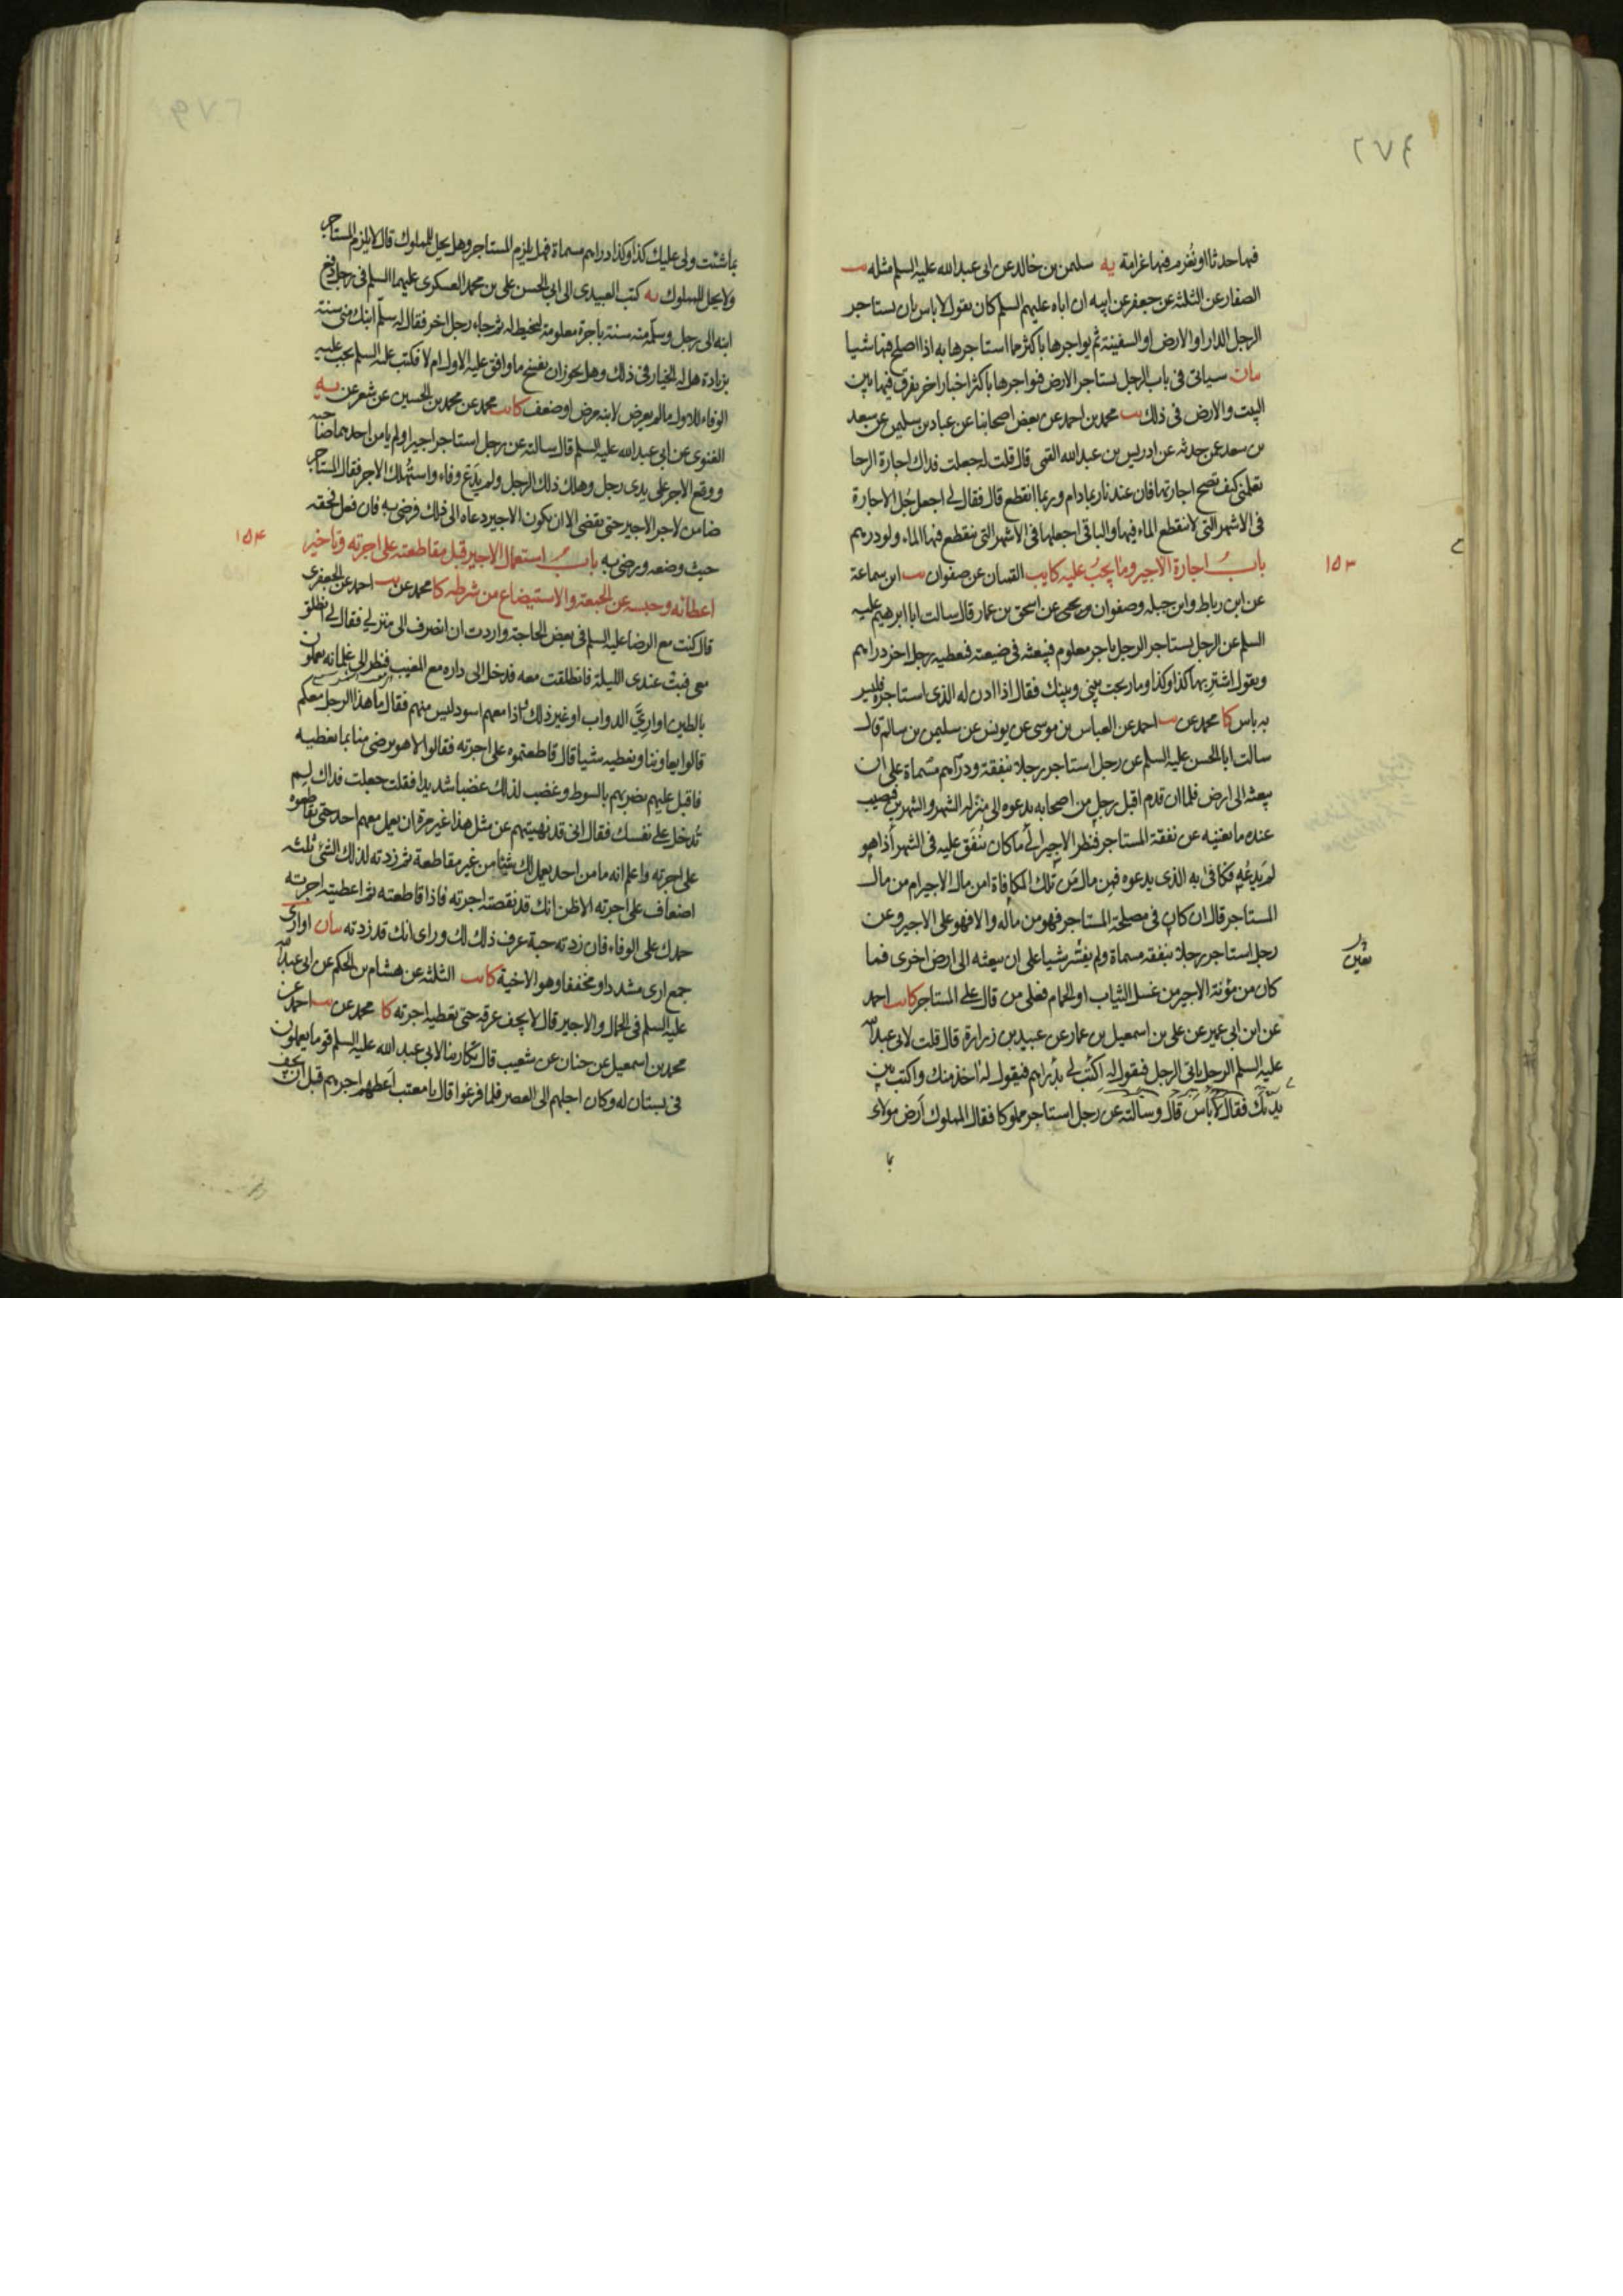 ٢٧٤
فيها حدثا او يغرم فيها غرامة يه سليمن بن خالد عن ابى عبد الله عليه السلم مثله يب
الصفار عن الثلثة عن جعفر عن ابيه ان اباه عليهم السلم كان يقول لا باس بان يستاجر
الرجل الدار او الارض او السفينة ثم يواجرها باكثر مما استاجرها به اذا اصلح فيها شيا
بيان سياتى فى باب الرجل يستاجر الارض فيواجرها باكثر اخبار اخر يفرق فيها بين
البيت والارض فى ذلك يب محمد بن احمد عن بعض اصحابنا عن عباد بن سليمن عن سعد
بن سعد عمن حدثه عن ادريس بن عبد الله القمى قال قلت له جعلت فداك اجارة الرحا
تعلمنى كيف تصح اجارتها فان عندنا ربما دام وربما انقطع قال فقال لى اجعل جُل الاجارة
فى الاشهر التى لا ينقطع الماء فيها والباقى اجعلها فى الاشهر التى ينقطع فيها الماء ولو درهم
١٥٣
باب اجارة الاجير وما يجب عليه كا يب القميان عن صفوان يب ابن سماعة
عن ابن رباط وابن جبله وصفوان بن يحيى عن اسحق بن عمار قال سالت ابا ابرهيم عليه
السلم عن الرجل يستاجر الرجل باجر معلوم فيبعثه فى ضيعته فيعطيه رجل اخر دراهم
ويقول اشتر بها كذا وكذا وما ربحت بينى وبينك فقال اذا اذن له الذى استاجره فليس
به باس كا محمد عن يب احمد عن العباس بن موسى عن يونس عن سليمن بن سالم قال
سالت ابا الحسن عليه السلم عن رجل استاجر رجلا بنفقة ودراهم مسماة على ان
يبعثه الى ارض فلما ان قدم اقبل رجل من اصحابه يدعوه الى منزله الشهر والشهرين فيصيب
عنده ما يغنيه عن نفقة المستاجر فنظر الاجير الى ما كان يُنفَق عليه فى الشهر اذا هو
لم يدعُه فكافى به الذى يدعوه فمن مال من تلك المكافاة امن مال الاجير ام من مال
المستاجر قال ان كان فى مصلحة المستاجر فهو من ماله والا فهو على الاجير وعن
رجل استاجر رجلا بنفقه مسماة ولم يفسر شيا على ان يبعثه الى ارض اخرى فما
كان من مؤنة الاجير من غسل الثياب او الحمام فعلى من قال على المستاجر كا يب احمد
عن ابن ابى عمير عن على بن اسمعيل بن عمار عن عبيد بن زرارة قال قلت لابى عبد الله
عليه السلم الرجل ياتى الرجل فيقول له اكتب لى بدراهم فيقول له اخذ منك واكتب بين
يديك فقال لا باس قال وسالته عن رجل استاجر مملوكا فقال المملوك ارض مولاى
بما
بما شئت ولى عليك كذا وكذا دراهم مسماة فهل يلزم المستاجر وهل يحل للمملوك قال لا يلزم المستاجر
ولا يحل للمملوك يه كتب العبيدى الى ابى الحسن على بن محمد العسكرى عليهما السلم فى رجل دفع
ابنه الى رجل وسلّمه منه سنة باجرة معلومة ليخيط له ثم جاء رجل اخر فقال له سلّم ابنك منى سنة
بزيادة هل له الخيار فى ذلك وهل يجوز ان يفسخ ما وافق عليه الاول ام لا فكتب عليه السلم يجب عليه
الوفاء للاول ما لم يعرض لابنه مرض او ضعف كا يب محمد عن محمد بن الحسين عن شعر عن يه
الغنوى عن ابى عبد الله عليه السلم قال سالته عن رجل استاجر اجيرا ولم يامن احدهما صاحبه
ووضع الاجر على يدى رجل وهلك ذلك الرجل ولم يدع وفاء واستهلك الاجر فقال المستاجر
ضامن لاجر الاجير حتى يقضى الا ان يكون الاجير دعاه الى ذلك فرضى به فان فعل فحقه
حيث وضعه ورضى به باب استعمال الاجير قبل مقاطعته على اجرته وتاخير
١٥٤
اعطائه وحبسه عن الجمعة والاستيضاع من شرطه كا محمد عن يب احمد عن الجعفرى
قال كنت مع الرضا عليه السلم فى بعض الحاجة واردت ان انصرف الى منزلى فقال لى انطلق
معى فبت عندى الليلة فانطلقت معه فدخل الى داره مع المغيب فنظر الى غلمانه يعملون
بالطين اوارىّ الدواب او غير ذلك واذا معهم اسود ليس منهم فقال ما هذا الرجل معكم
قالوا يعاوننا ونعطيه شيا قال قاطعتموه على اجرته فقالوا لا هو يرضى منا بما نعطيه
فاقبل عليهم يضربهم بالسوط وغضب لذلك غضبا شديدا فقلت جعلت فداك لم
تُدخل على نفسك فقال انى قد نهيتهم عن مثل هذا غير مرة ان يعمل معهم احد حتى يقاطعوه
على اجرته واعلم انه ما من احد يعمل لك شيئا من غير مقاطعة ثم زدته لذلك الشئ ثلثه
اضعاف على اجرته الا ظن انك قد نقصته اجرته فاذا قاطعته ثم اعطيته اجرته
حمدك على الوفاء فان زدته حبة عرف ذلك لك وراى انك قد زدته بيان اوارى
جمع ارى مشددا ومخففا وهو الاخية كا يب الثلثه عن هشام بن الحكم عن ابى عبد الله
عليه السلم فى الحمال والاجير قال لا يجف عرقه حتى تعطيه اجرته كا محمد عن يب احمد عن
محمد بن اسمعيل عن حنان عن شعيب قال تكارينا لابى عبد الله عليه السلم قوما يعملون
فى بستان له وكان اجلهم الى العصر فلما فرغوا قال يا معتب اعطهم اجرهم قبل ان يجف